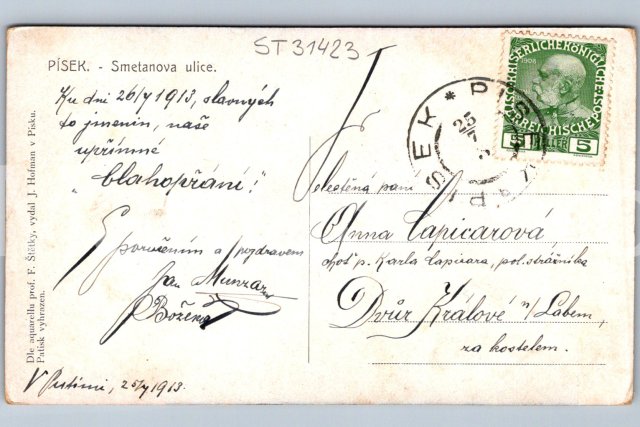 ST31423
PÍSEK. - Smetanova ulice.
Ku dni 26/7 1913, slavných
to jmenin, naše
upřímné
"blahopřání!"
S poručením a pozdravem
Jan Munzar
Božena
V Putimi, 25/7 1913.
Dle aquarellu prof. F. Štětky, vydal J. Hofman v Písku.
Patisk vyhrazen.
KAISERLICHE KÖNIGLICHE
ÖSTERREICHISCHE POST
1908
5 HELLER 5
PISEK * PÍSEK
25
7
Ctěná paní
Anna Capicarová,
choť p. Karla Capicara, pol. strážníka
Dvůr Králové n/Labem,
za kostelem.